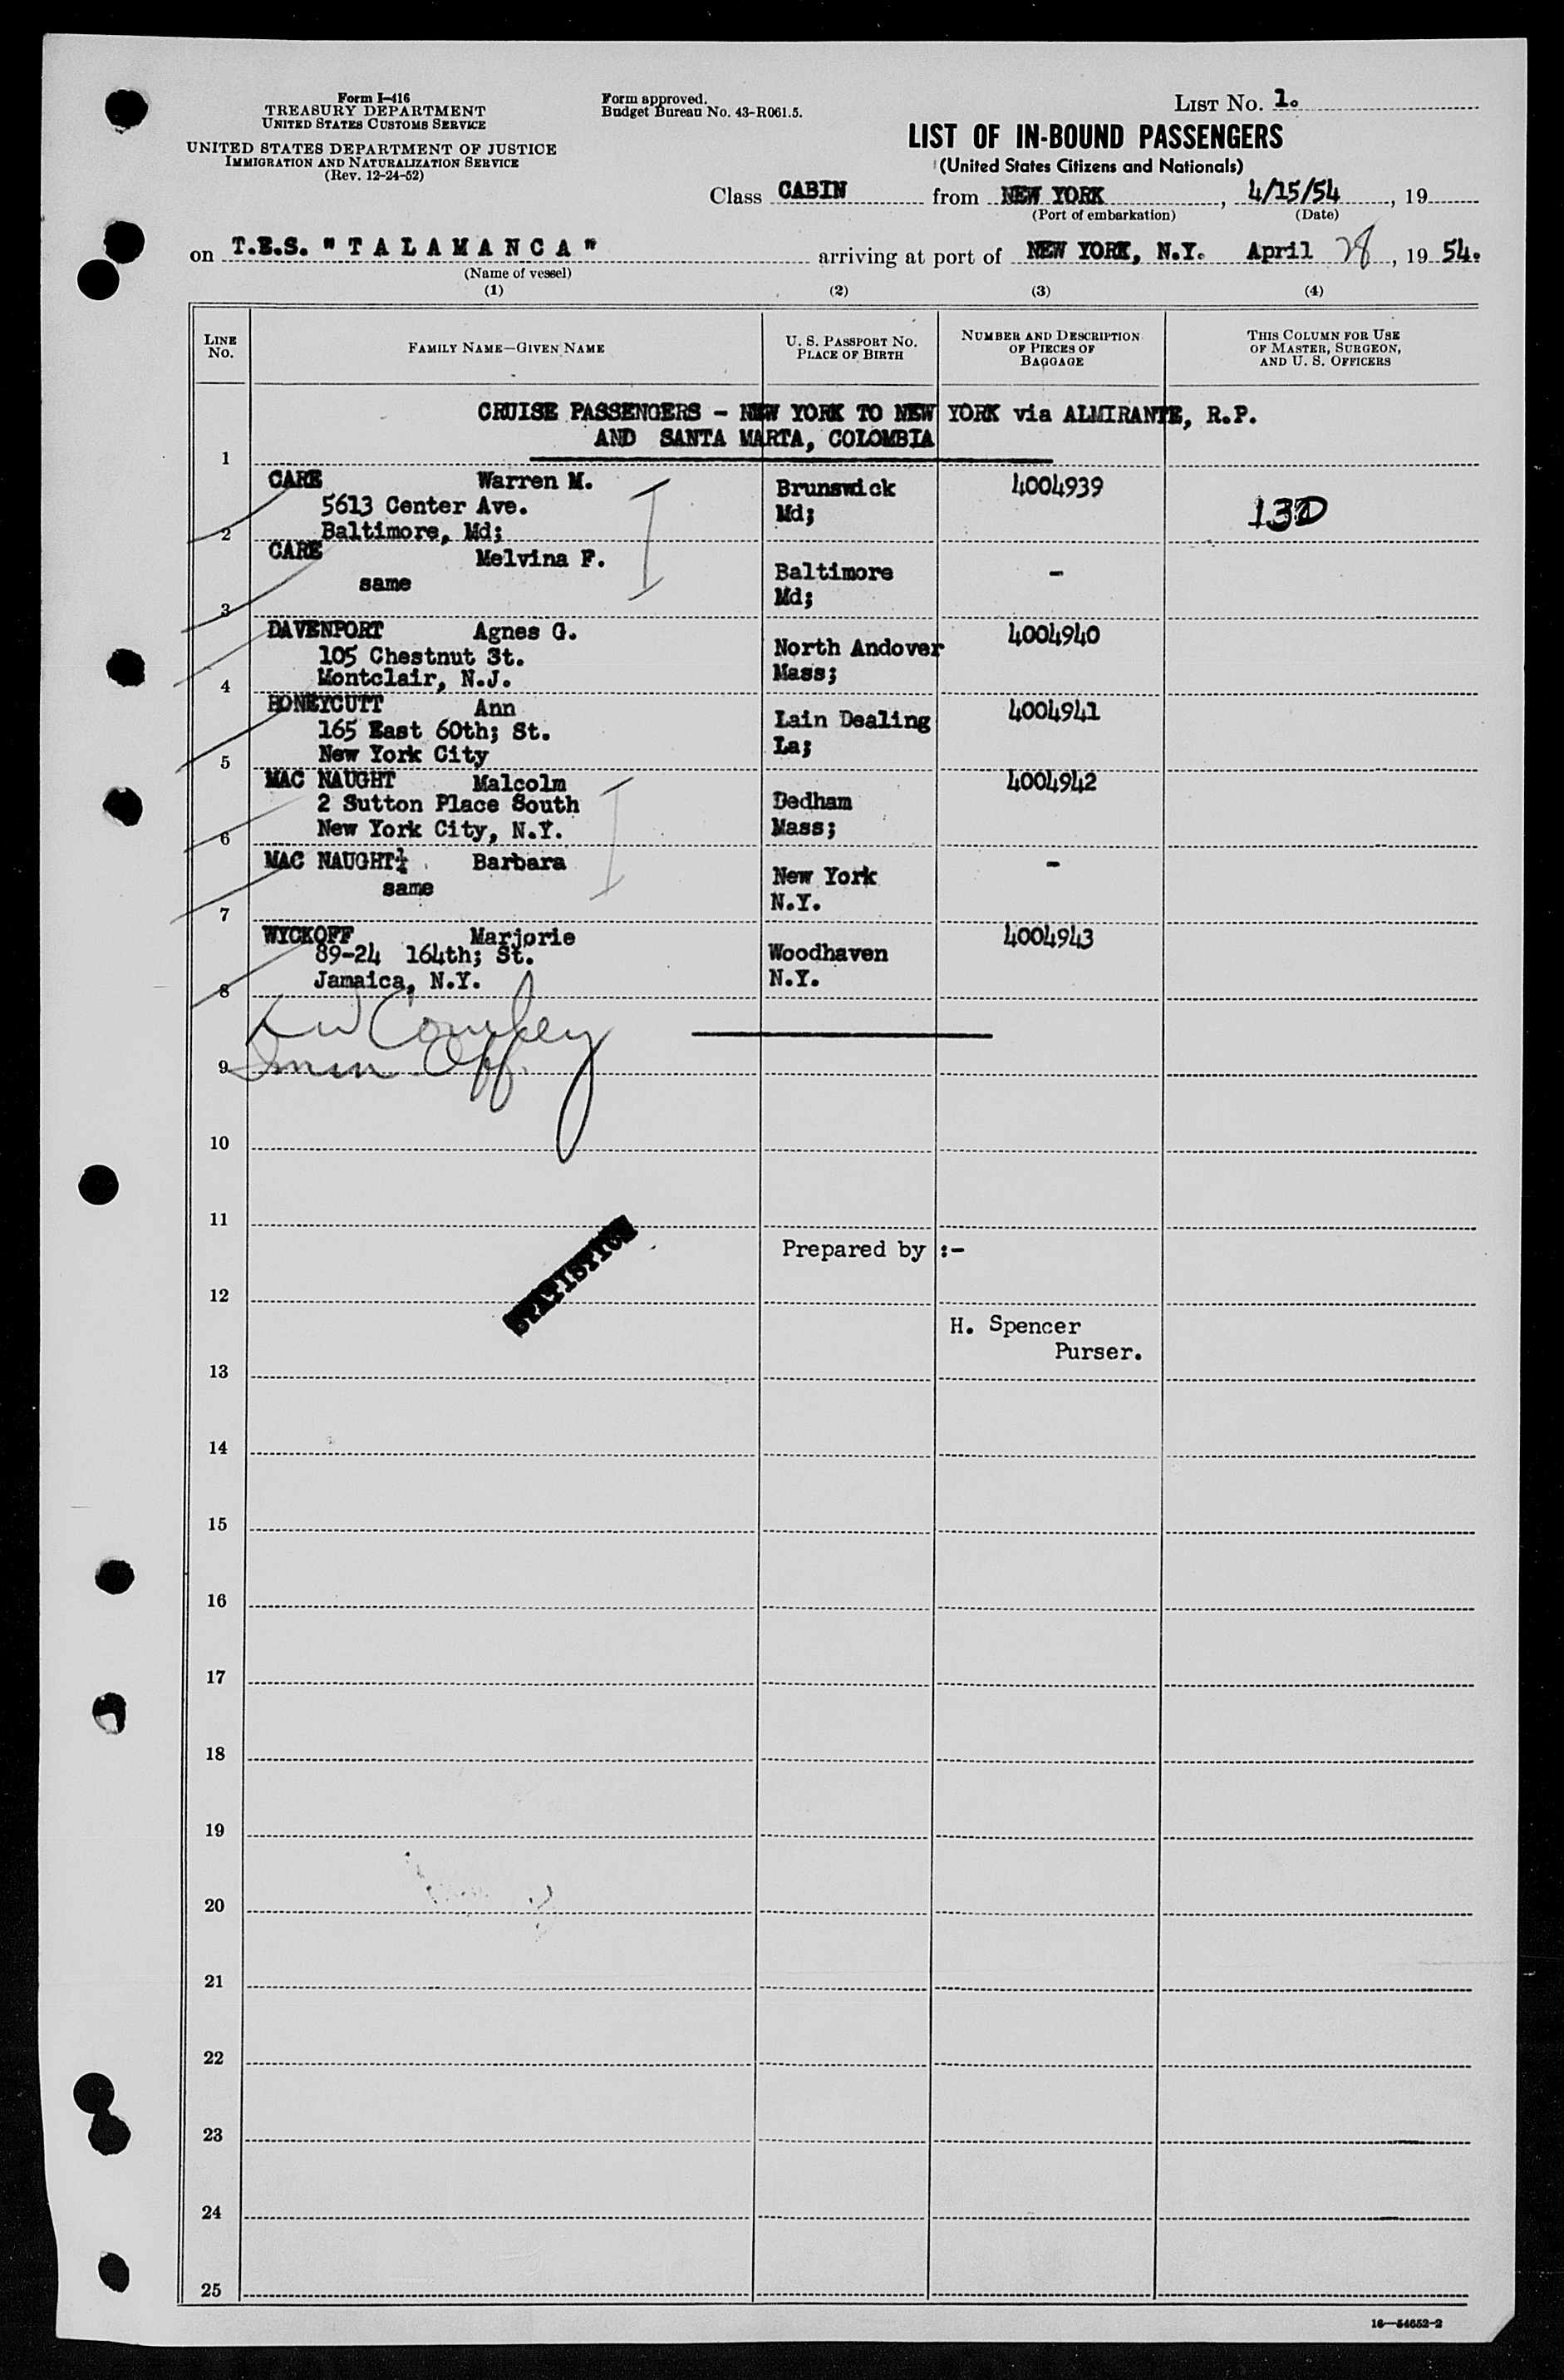 Form I-416
TREASURY DEPARTMENT
UNITED STATES CUSTOMS SERVICE
UNITED STATES DEPARTMENT OF JUSTICE
IMMIGRATION AND NATURALIZATION SERVICE
(Rev. 12-24-52)
Form approved.
Budget Bureau No. 43-R061.5.
LIST NO. 1.
LIST OF IN-BOUND PASSENGERS
(United States Citizens and Nationals)
Class CABIN from NEW YORK, 4/15/54, 19
(Port of embarkation) (Date)
on T.E.S. "TALAMANCA" arriving at port of NEW YORK, N.Y. April 28, 19 54.
(Name of vessel)
(1) (2) (3) (4)
LINE NO. FAMILY NAME—GIVEN NAME U. S. PASSPORT NO. PLACE OF BIRTH NUMBER AND DESCRIPTION OF PIECES OF BAGGAGE THIS COLUMN FOR USE OF MASTER, SURGEON, AND U. S. OFFICERS
CRUISE PASSENGERS - NEW YORK TO NEW YORK via ALMIRANTE, R.P.
AND SANTA MARTA, COLOMBIA
1
CARE Warren M. Brunswick 4004939
5613 Center Ave. Md; 13D
2 Baltimore, Md;
CARE Melvina F. Baltimore -
same Md;
3
DAVENPORT Agnes G. North Andover 4004940
105 Chestnut St. Mass;
4 Montclair, N.J.
HONEYCUTT Ann Lain Dealing 4004941
165 East 60th; St. La;
5 New York City
MAC NAUGHT Malcolm Dedham 4004942
2 Sutton Place South Mass;
6 New York City, N.Y.
MAC NAUGHT Barbara New York -
same N.Y.
7
WYCKOFF Marjorie Woodhaven 4004943
89-24 164th; St. N.Y.
8 Jamaica, N.Y.
9 Imm Off.
10
11
Prepared by :-
STATISTICS
12
H. Spencer
Purser.
13
14
15
16
17
18
19
20
21
22
23
24
25
16—54652-2